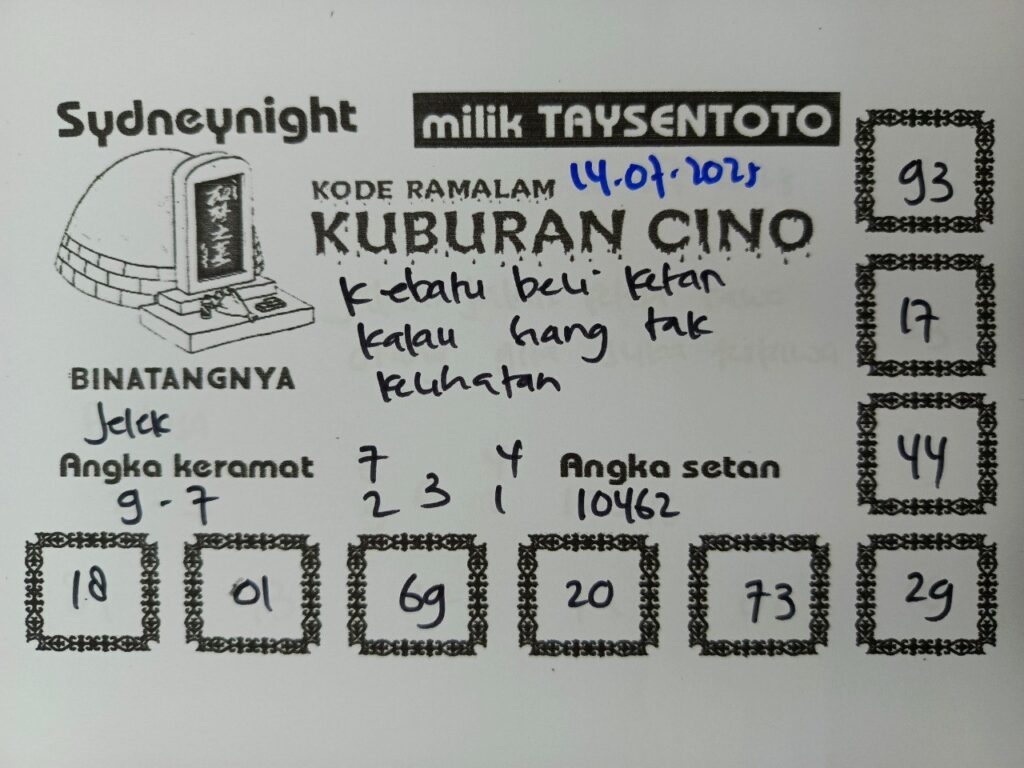 Sydneynight
milik TAYSENTOTO
14.07.2025
KODE RAMALAM
KUBURAN CINO
Kebatu beli ketan
kalau hang tak
kelihatan
BINATANGNYA
Jelek
Angka keramat
9 - 7
7 4
3
2 1
Angka setan
10462
93
17
44
18
01
69
20
73
29